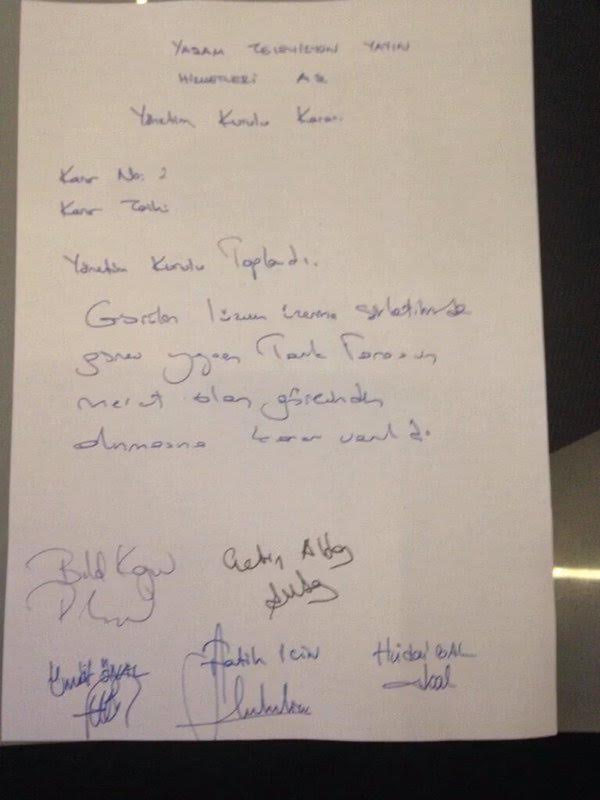 YAŞAM TELEVİZYON YAYIN
HİZMETLERİ A.Ş.
Yönetim Kurulu Kararı.
Karar No: 2
Karar Tarihi
Yönetim Kurulu Toplandı.
Görülen lüzum üzerine şirketimizde
görev yapan Tarık
mevcut olan görevinden
alınmasına karar verildi.
Çetin Altaş
Ümit ÖNAL Fatih İÇİN Hüdai BAL